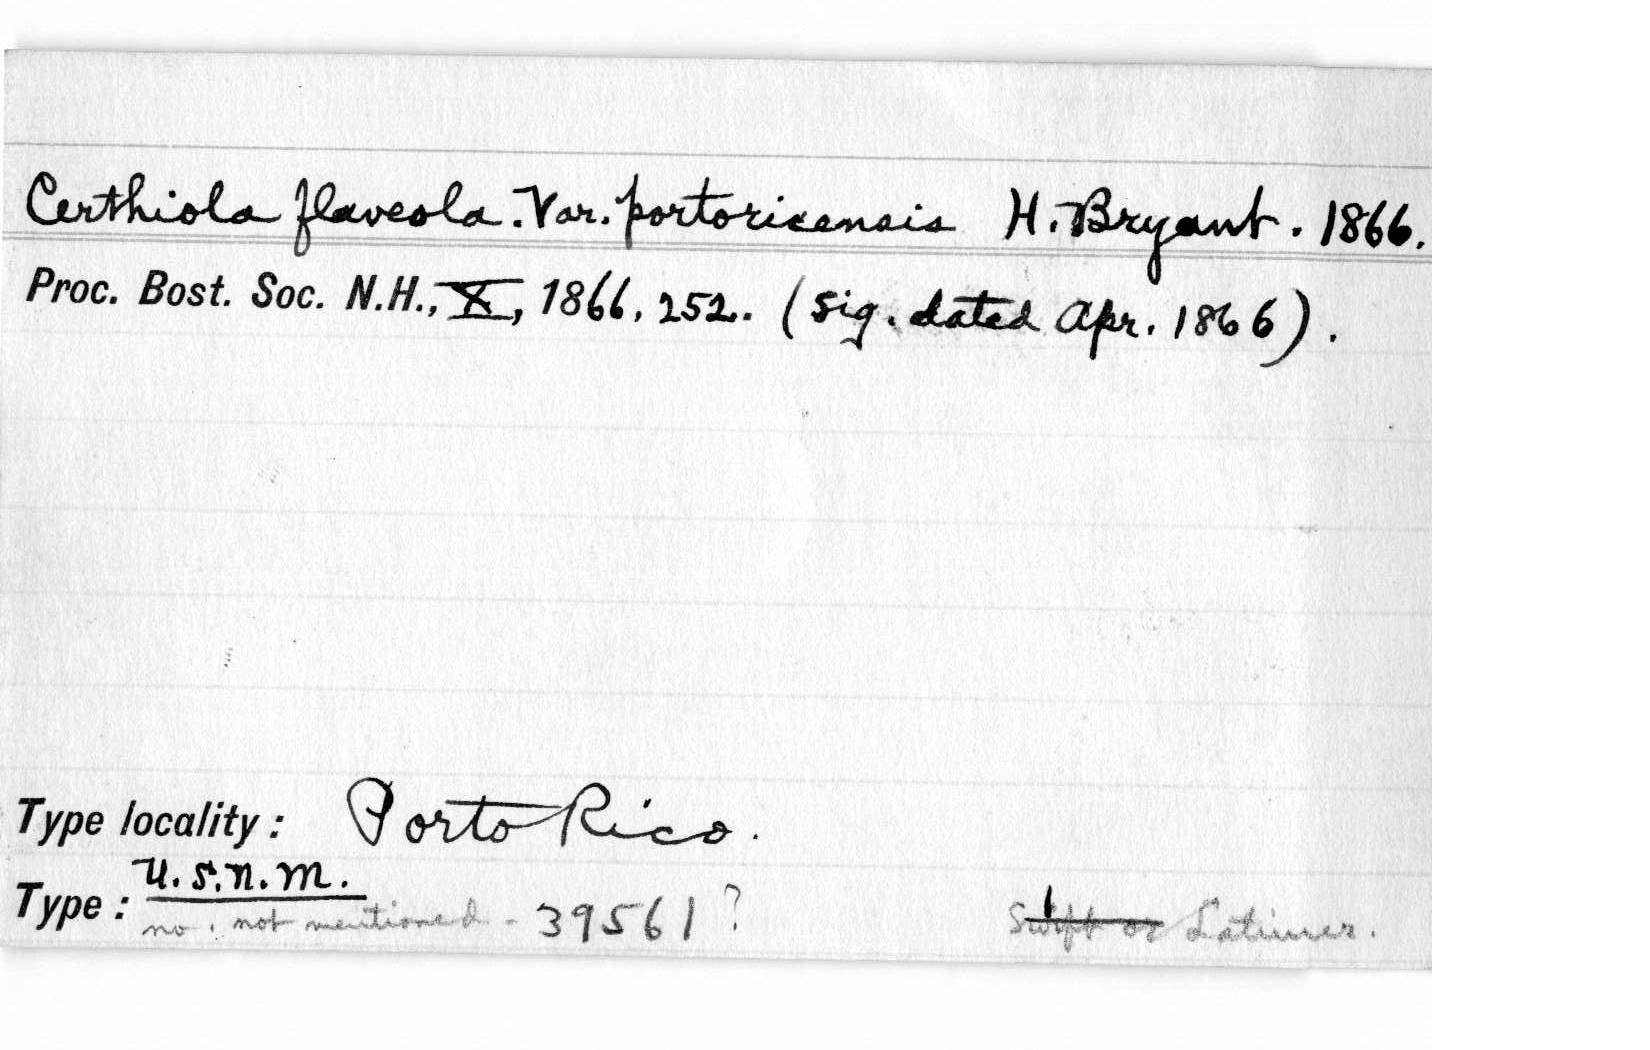 Certhiola flaveola. Var. portoricensis H. Bryant. 1866.
Proc. Bost. Soc. N.H., X, 1866, 252. (Sig. dated Apr. 1866).
Type locality: Porto Rico.
U.S.N.M.
Type: no. not mentioned - 39561? Swift or Latimer.